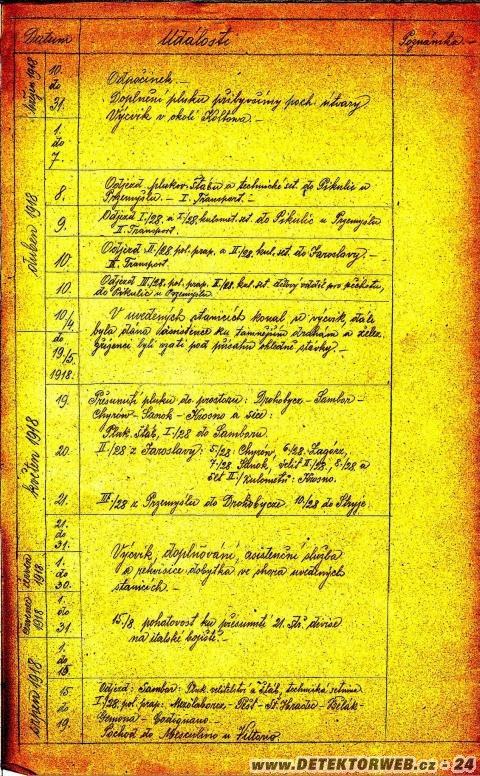 Datum Události Poznámka
březen 1918
10. do 31. Odpočinek. –
Doplnění pluku přibyvšími poch. útvary.
1. do 7. Výcvik v okolí Koltowa. –
duben 1918
8. Odjezd plukov. štábu a technické set. do Pikulic u
Przemyslu. – I. Transport. –
9. Odjezd I/28. a I/28. kulomet. set. do Pikulic u Przemyslu
II. Transport.
10. Odjezd II/28. pol. prap. a II/28. kul. set. do Jaroslavy. –
III. Transport
10. Odjezd III/28. pol. prap. III/28. kul. set. pro pěchotu,
do Pikulic u Przemyslu.
10/4. do 19/5. 1918. V uvedených stanicích konal se výcvik, dále
byla dána asistence ku tamnějším drahám a želez.
zřízenci byli vzati pod přísahu ohledně stávky. –
květen 1918
19. Přesunutí pluku do prostoru: Drohobycz – Sambor –
Chyrów – Sanok – Krosno a sice:
Pluk. štáb, I/28 do Samboru
20. II/28 z Jaroslavy: 5/28: Chyrów, 6/28: Zagórz,
7/28: Sanok, velit. II/28, 8/28 a
set II/kulometů: Krosno.
21. III/28 z Przemyslu do Drohobycze, 10/28 do Stryje.
21. do 31.
červen 1918
1. do 30. Výcvik, doplňování, asistenční služba
a rekvisice dobytka ve shora uvedených
stanicích. –
červenec 1918
1. do 31.
15/8. pohotovost ku přesunutí 21. stř. divise
na italské bojiště. –
srpen 1918
1. do 15.
15. do 19. Odjezd: Sambor: Pluk. velitelství a štáb, technická setnina
I/28. pol. prap.: Mezőlaborcz – Pešť – –
Gemona – Codignano. –
Pochod do Meseulino u Villano.
www.DETEKTORWEB.cz - 24